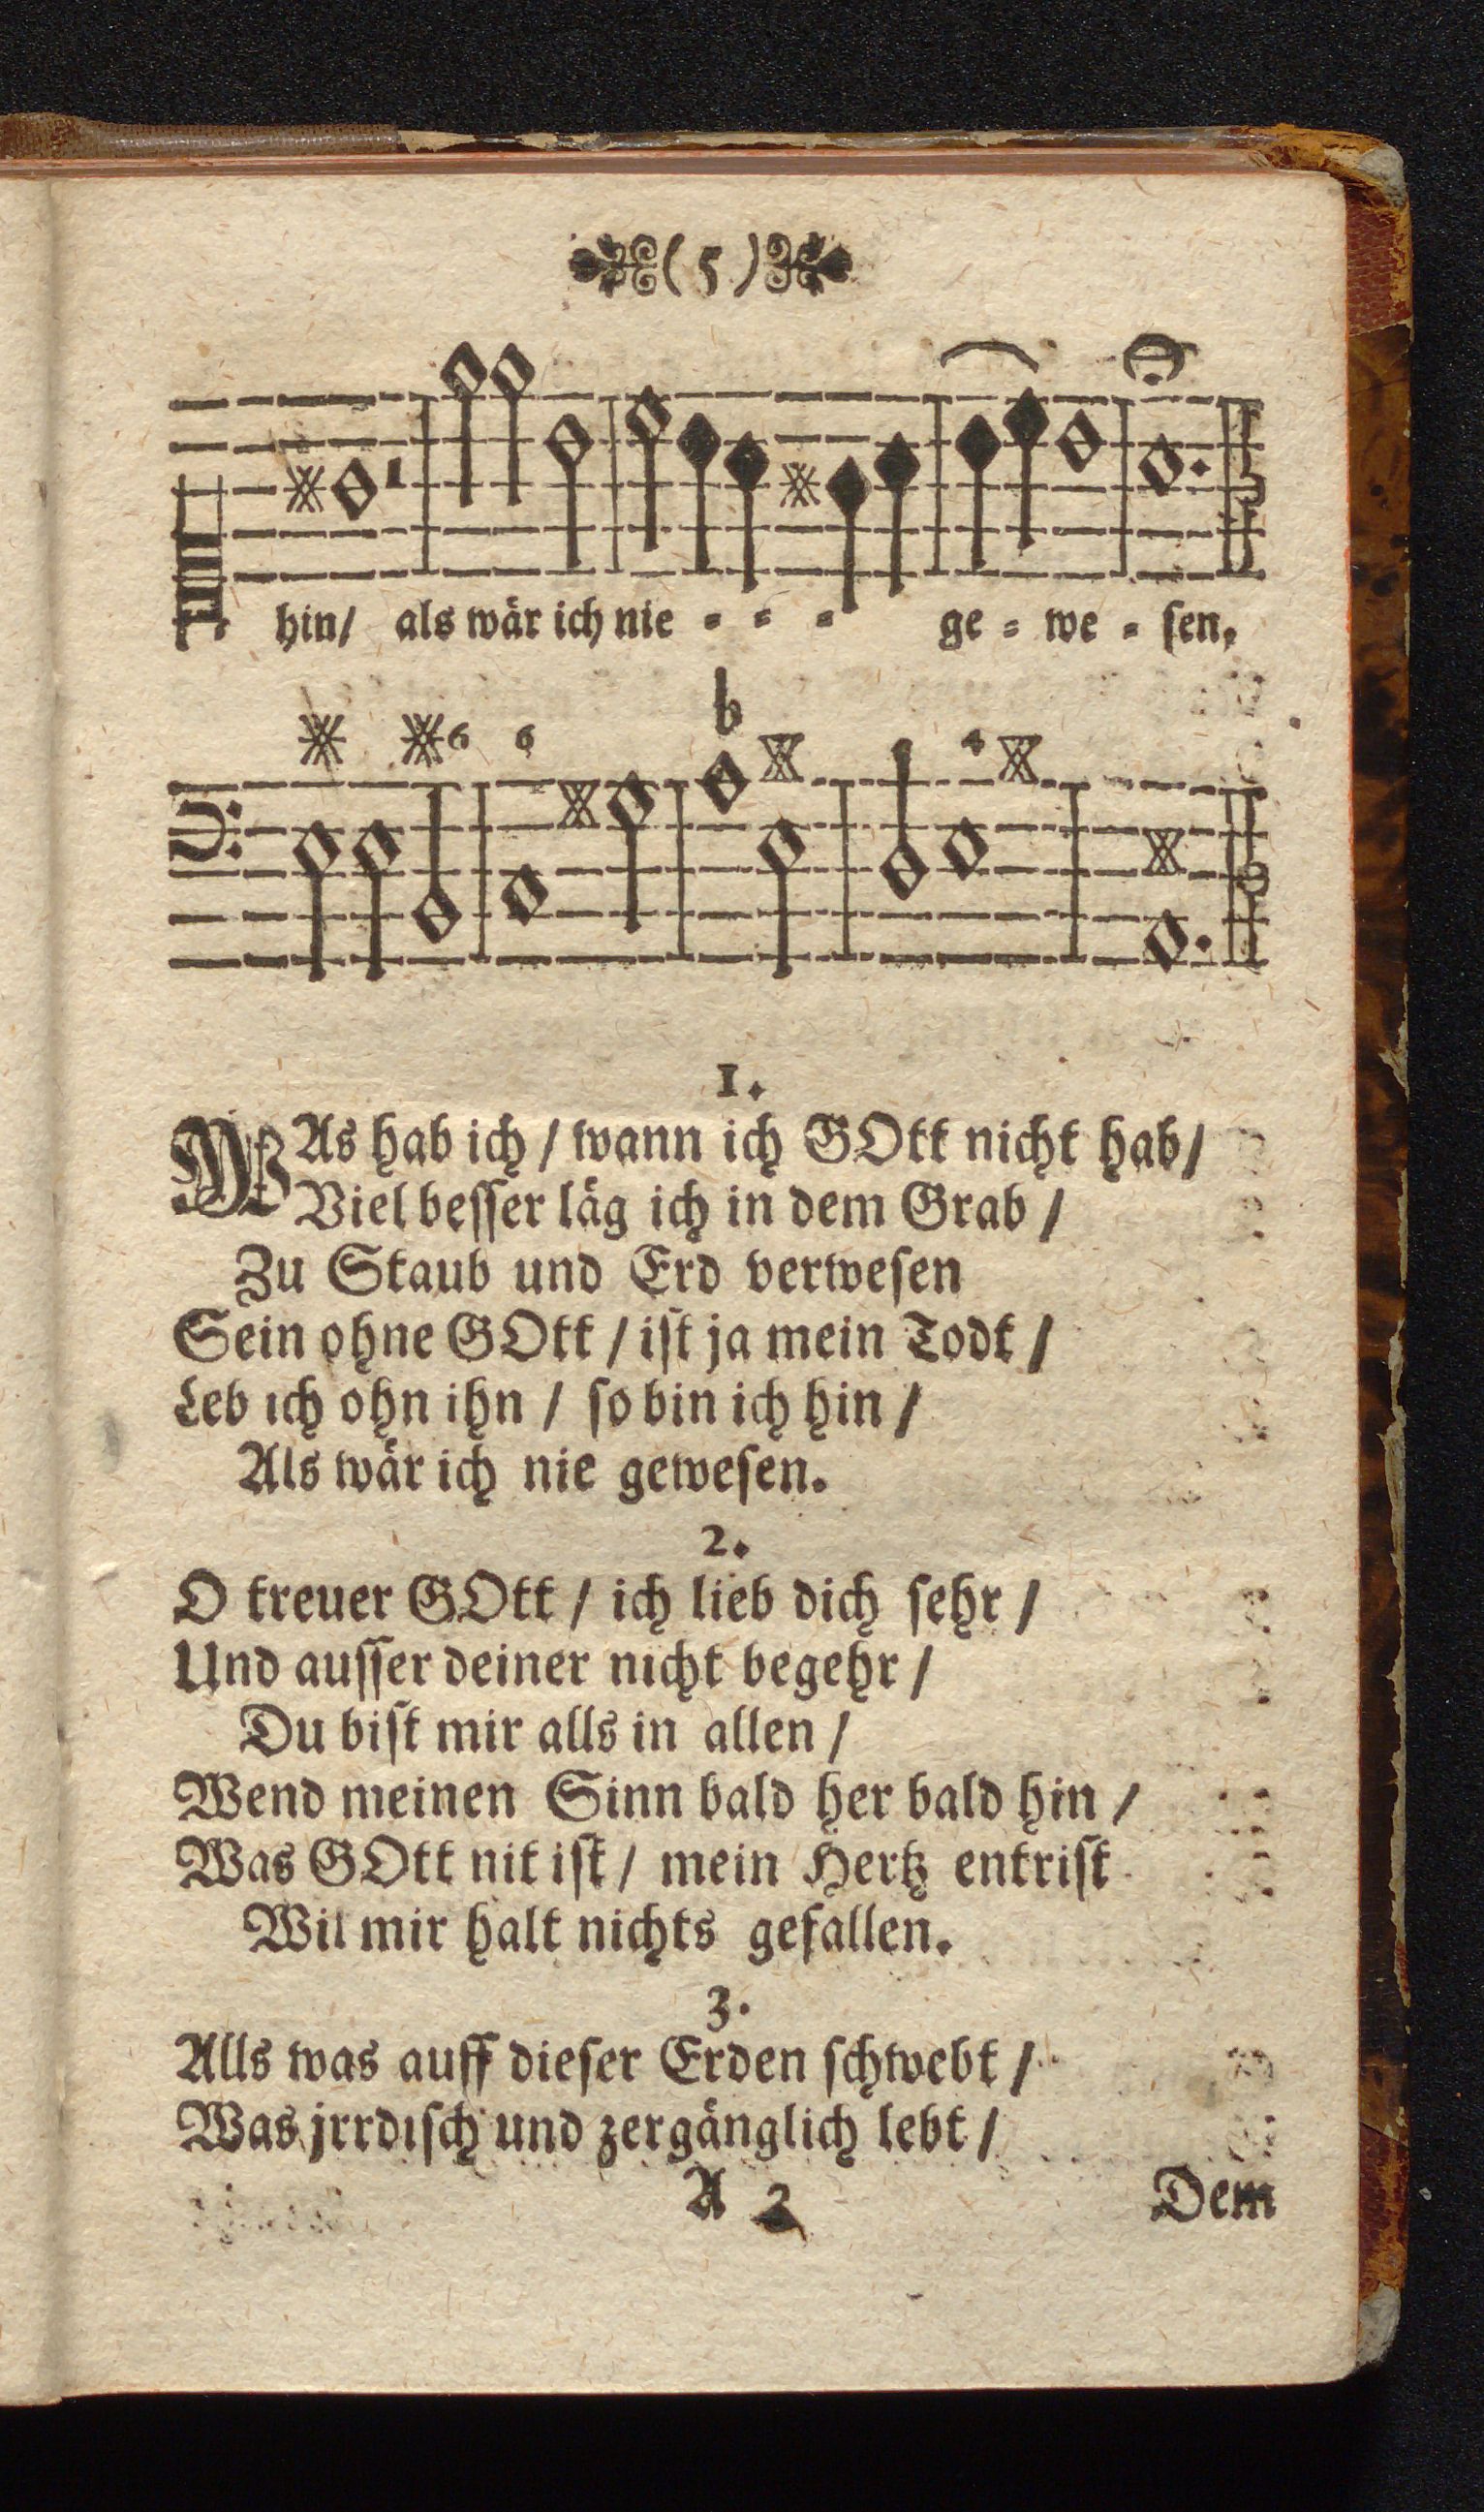 (5)
hin/ als wär ich nie - - - ge - we - sen.
6 6 b 6 4
1.
WAs hab ich / wann ich GOtt nicht hab/
Viel besser läg ich in dem Grab /
Zu Staub und Erd verwesen
Sein ohne GOtt / ist ja mein Todt /
Leb ich ohn ihn / so bin ich hin /
Als wär ich nie gewesen.
2.
O treuer GOtt / ich lieb dich sehr /
Und ausser deiner nicht begehr /
Du bist mir alls in allen /
Wend meinen Sinn bald her bald hin /
Was GOtt nit ist / mein Hertz entrist
Wil mir halt nichts gefallen.
3.
Alls was auff dieser Erden schwebt /
Was jrrdisch und zergänglich lebt /
A 2 Dem